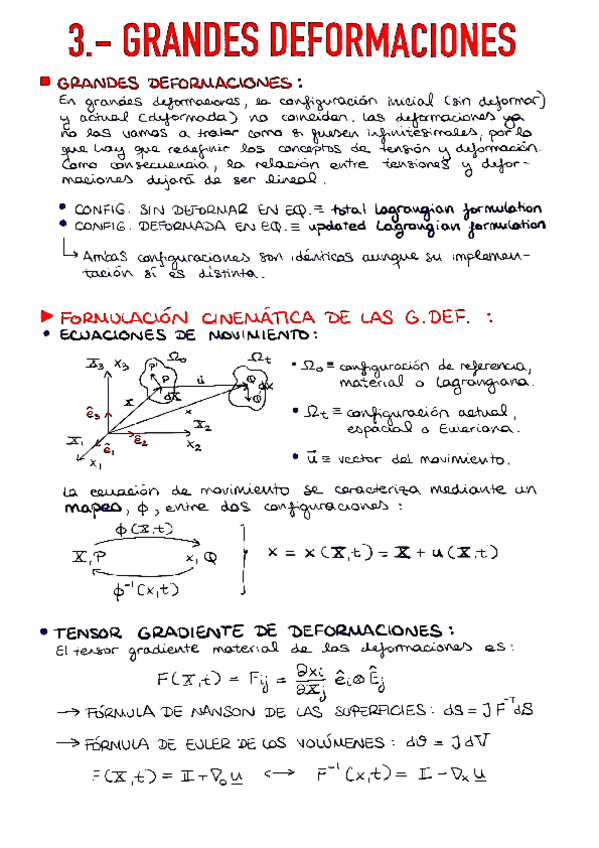 3.- GRANDES DEFORMACIONES
GRANDES DEFORMACIONES:
En grandes deformaciones, la configuración inicial (sin deformar)
y actual (deformada) no coinciden. Las deformaciones ya
no las vamos a tratar como si fuesen infinitesimales, por lo
que hay que redefinir los conceptos de tensión y deformación.
Como consecuencia, la relación entre tensiones y defor-
maciones dejará de ser lineal.
• CONFIG. SIN DEFORMAR EN EQ. ≡ total Lagrangian formulation
• CONFIG. DEFORMADA EN EQ. ≡ updated Lagrangian formulation
↳ Ambas configuraciones son idénticas aunque su implemen-
tación sí es distinta.
► FORMULACIÓN CINEMÁTICA DE LAS G.DEF. :
• ECUACIONES DE MOVIMIENTO:
X3 x3 Ω0 Ωt
P' P dX u Q Q' dx
X x
ê3 ê1 ê2
X2 x2
X1 x1
• Ω0 ≡ configuración de referencia,
material o Lagrangiana.
• Ωt ≡ configuración actual,
espacial o Euleriana.
• u ≡ vector del movimiento.
La ecuación de movimiento se caracteriza mediante un
mapeo, ϕ, entre dos configuraciones:
ϕ(X,t)
X,P x,Q
ϕ⁻¹(x,t)
x = x(X,t) = X + u(X,t)
• TENSOR GRADIENTE DE DEFORMACIONES:
El tensor gradiente material de las deformaciones es:
F(X,t) = Fij = ∂xi/∂Xj êi⊗Êj
→ FÓRMULA DE NANSON DE LAS SUPERFICIES: ds = J F⁻ᵀ dS
→ FÓRMULA DE EULER DE LOS VOLÚMENES: dϑ = J dV
F(X,t) = I + ∇₀u ↔ F⁻¹(x,t) = I - ∇ₓu